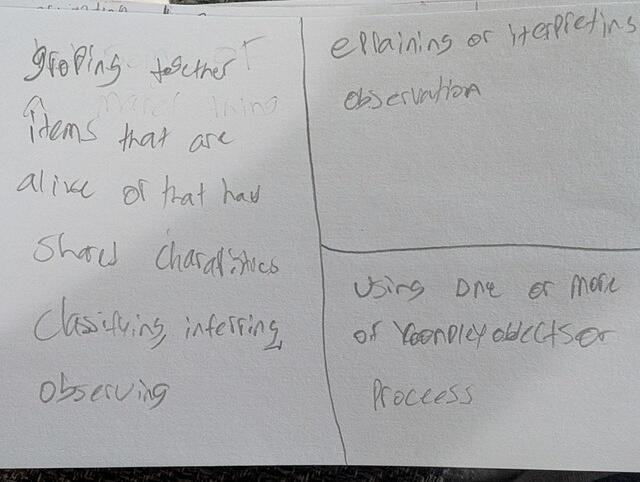 groping together
items that are
alive or that have
shared charalistics
classifying, inferring,
observing
eplaining or iterpreting
observation
using one or more
of objects or
proccess